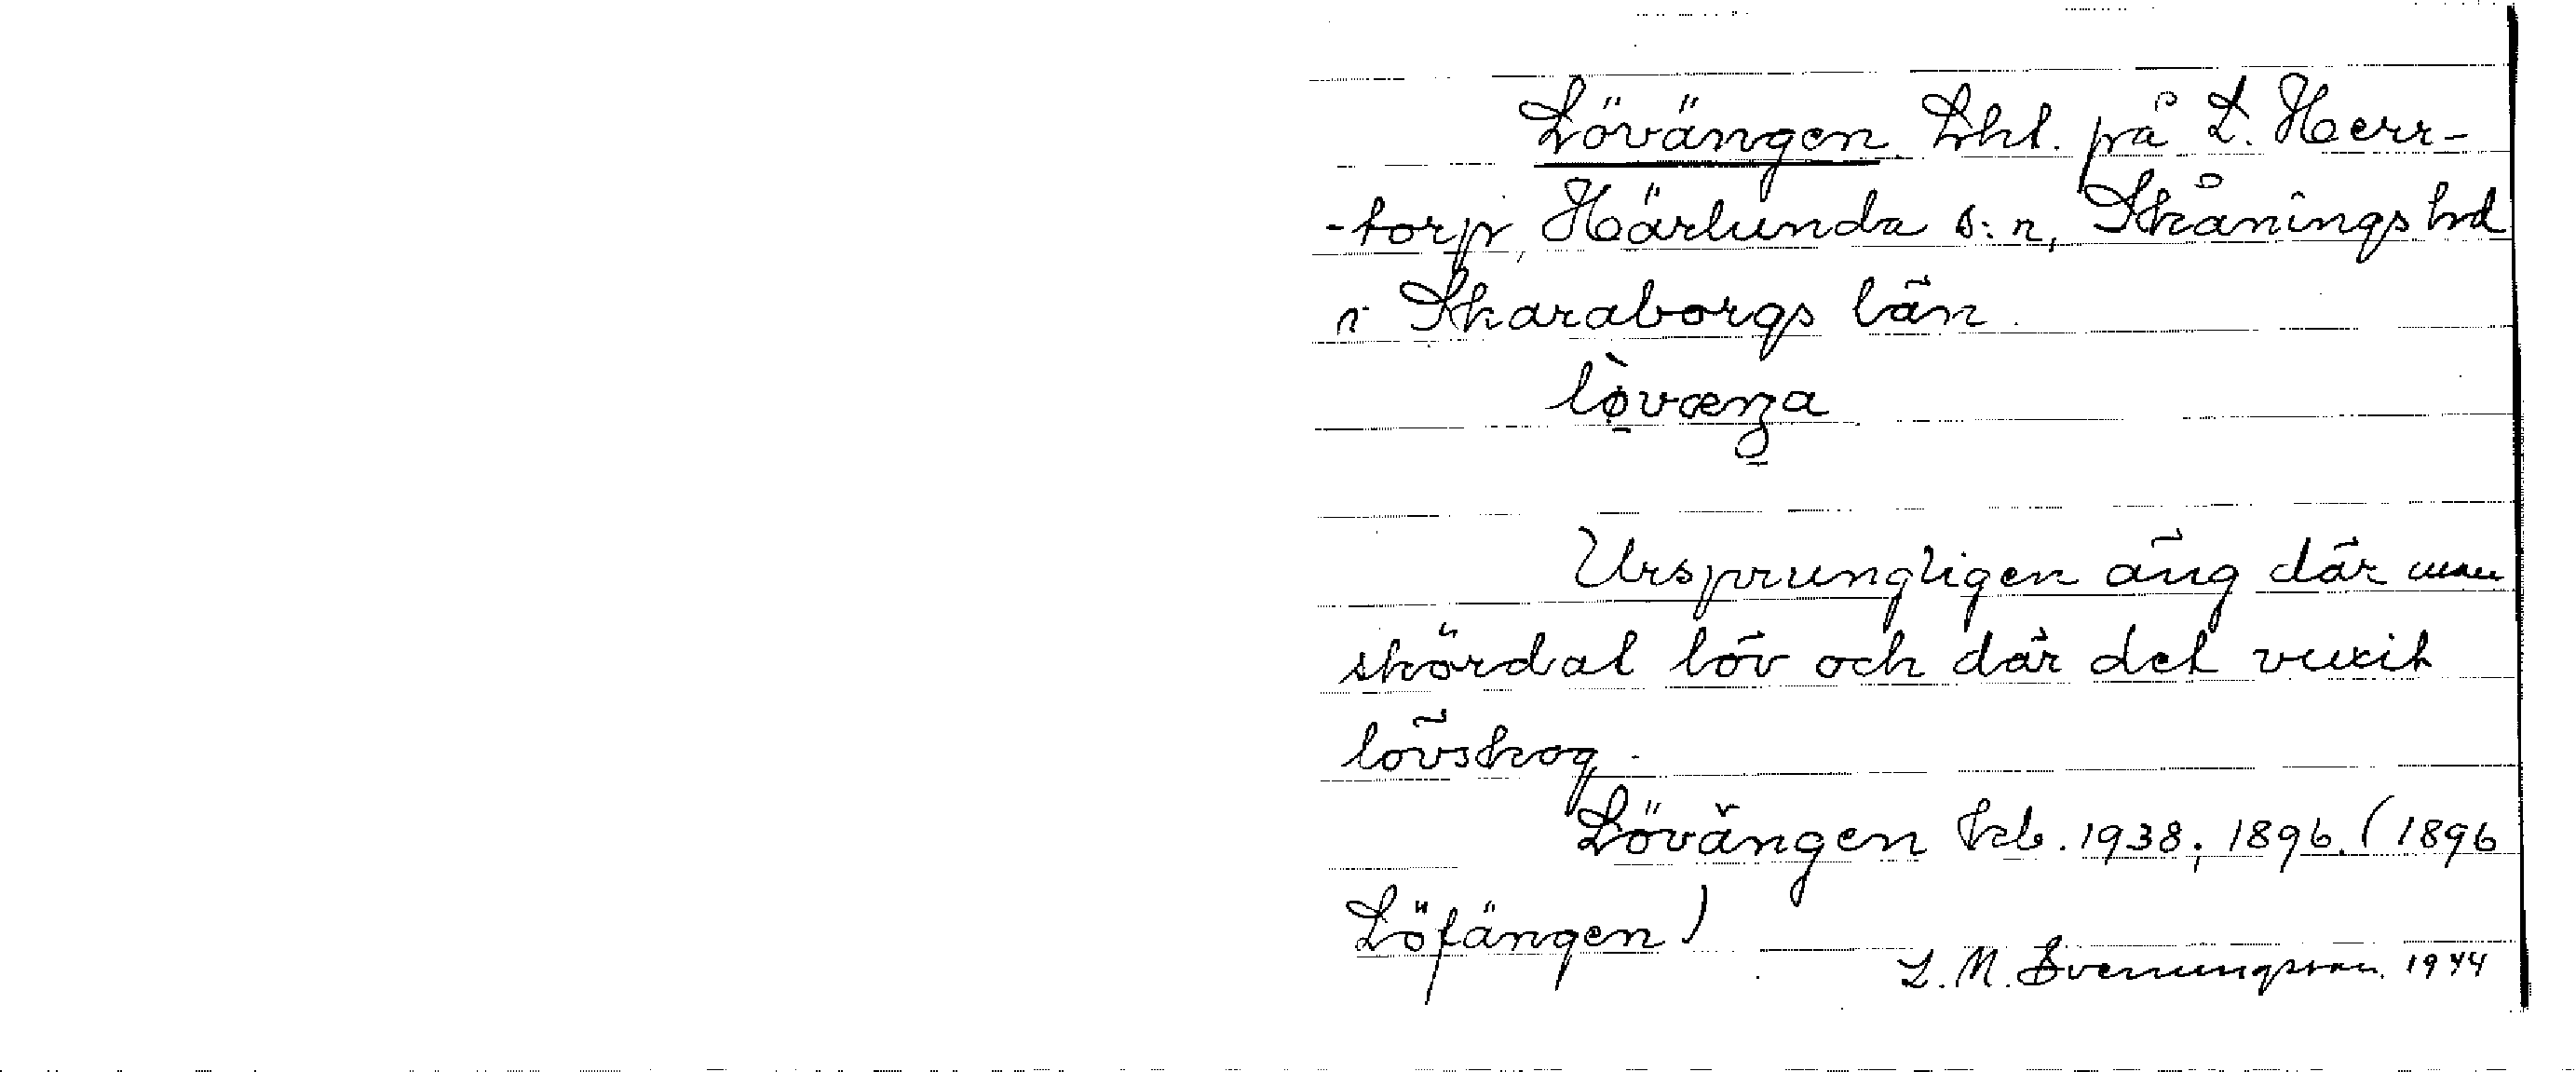 Lövängen. Lht. på L. Herr-
-torp, Härlunda s:n, Skånings hd
i Skaraborgs län.
lø̀væŋa
Ursprungligen äng där man
skördat löv och där det vuxit
lövskog.
Lövängen kb. 1938; 1896. (1896
Löfängen)
L. M. Svenungsson 1944